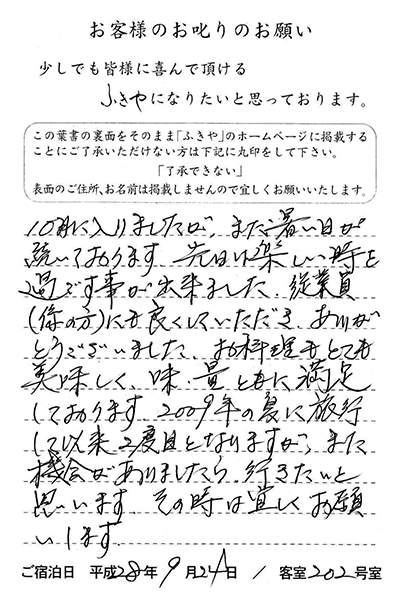 お客様のお叱りのお願い
少しでも皆様に喜んで頂ける
ふきやになりたいと思っております。
この葉書の裏面をそのまま「ふきや」のホームページに掲載する
ことにご了承いただけない方は下記に丸印をして下さい。
「了承できない」
表面のご住所、お名前は掲載しませんので宜しくお願いいたします。
10月に入りましたが、まだ暑い日が
続いております。先日は楽しい時を
過ごす事が出来ました。従業員
(係の方)にも良くしていただき、ありが
とうございました。お料理もとても
美味しく、味・量ともに満足
しております。2009年の夏に旅行
して以来2度目となりますが、また
機会がありましたら、行きたいと
思います。その時は宜しくお願
いします。
ご宿泊日 平成28年9月24日 / 客室202号室